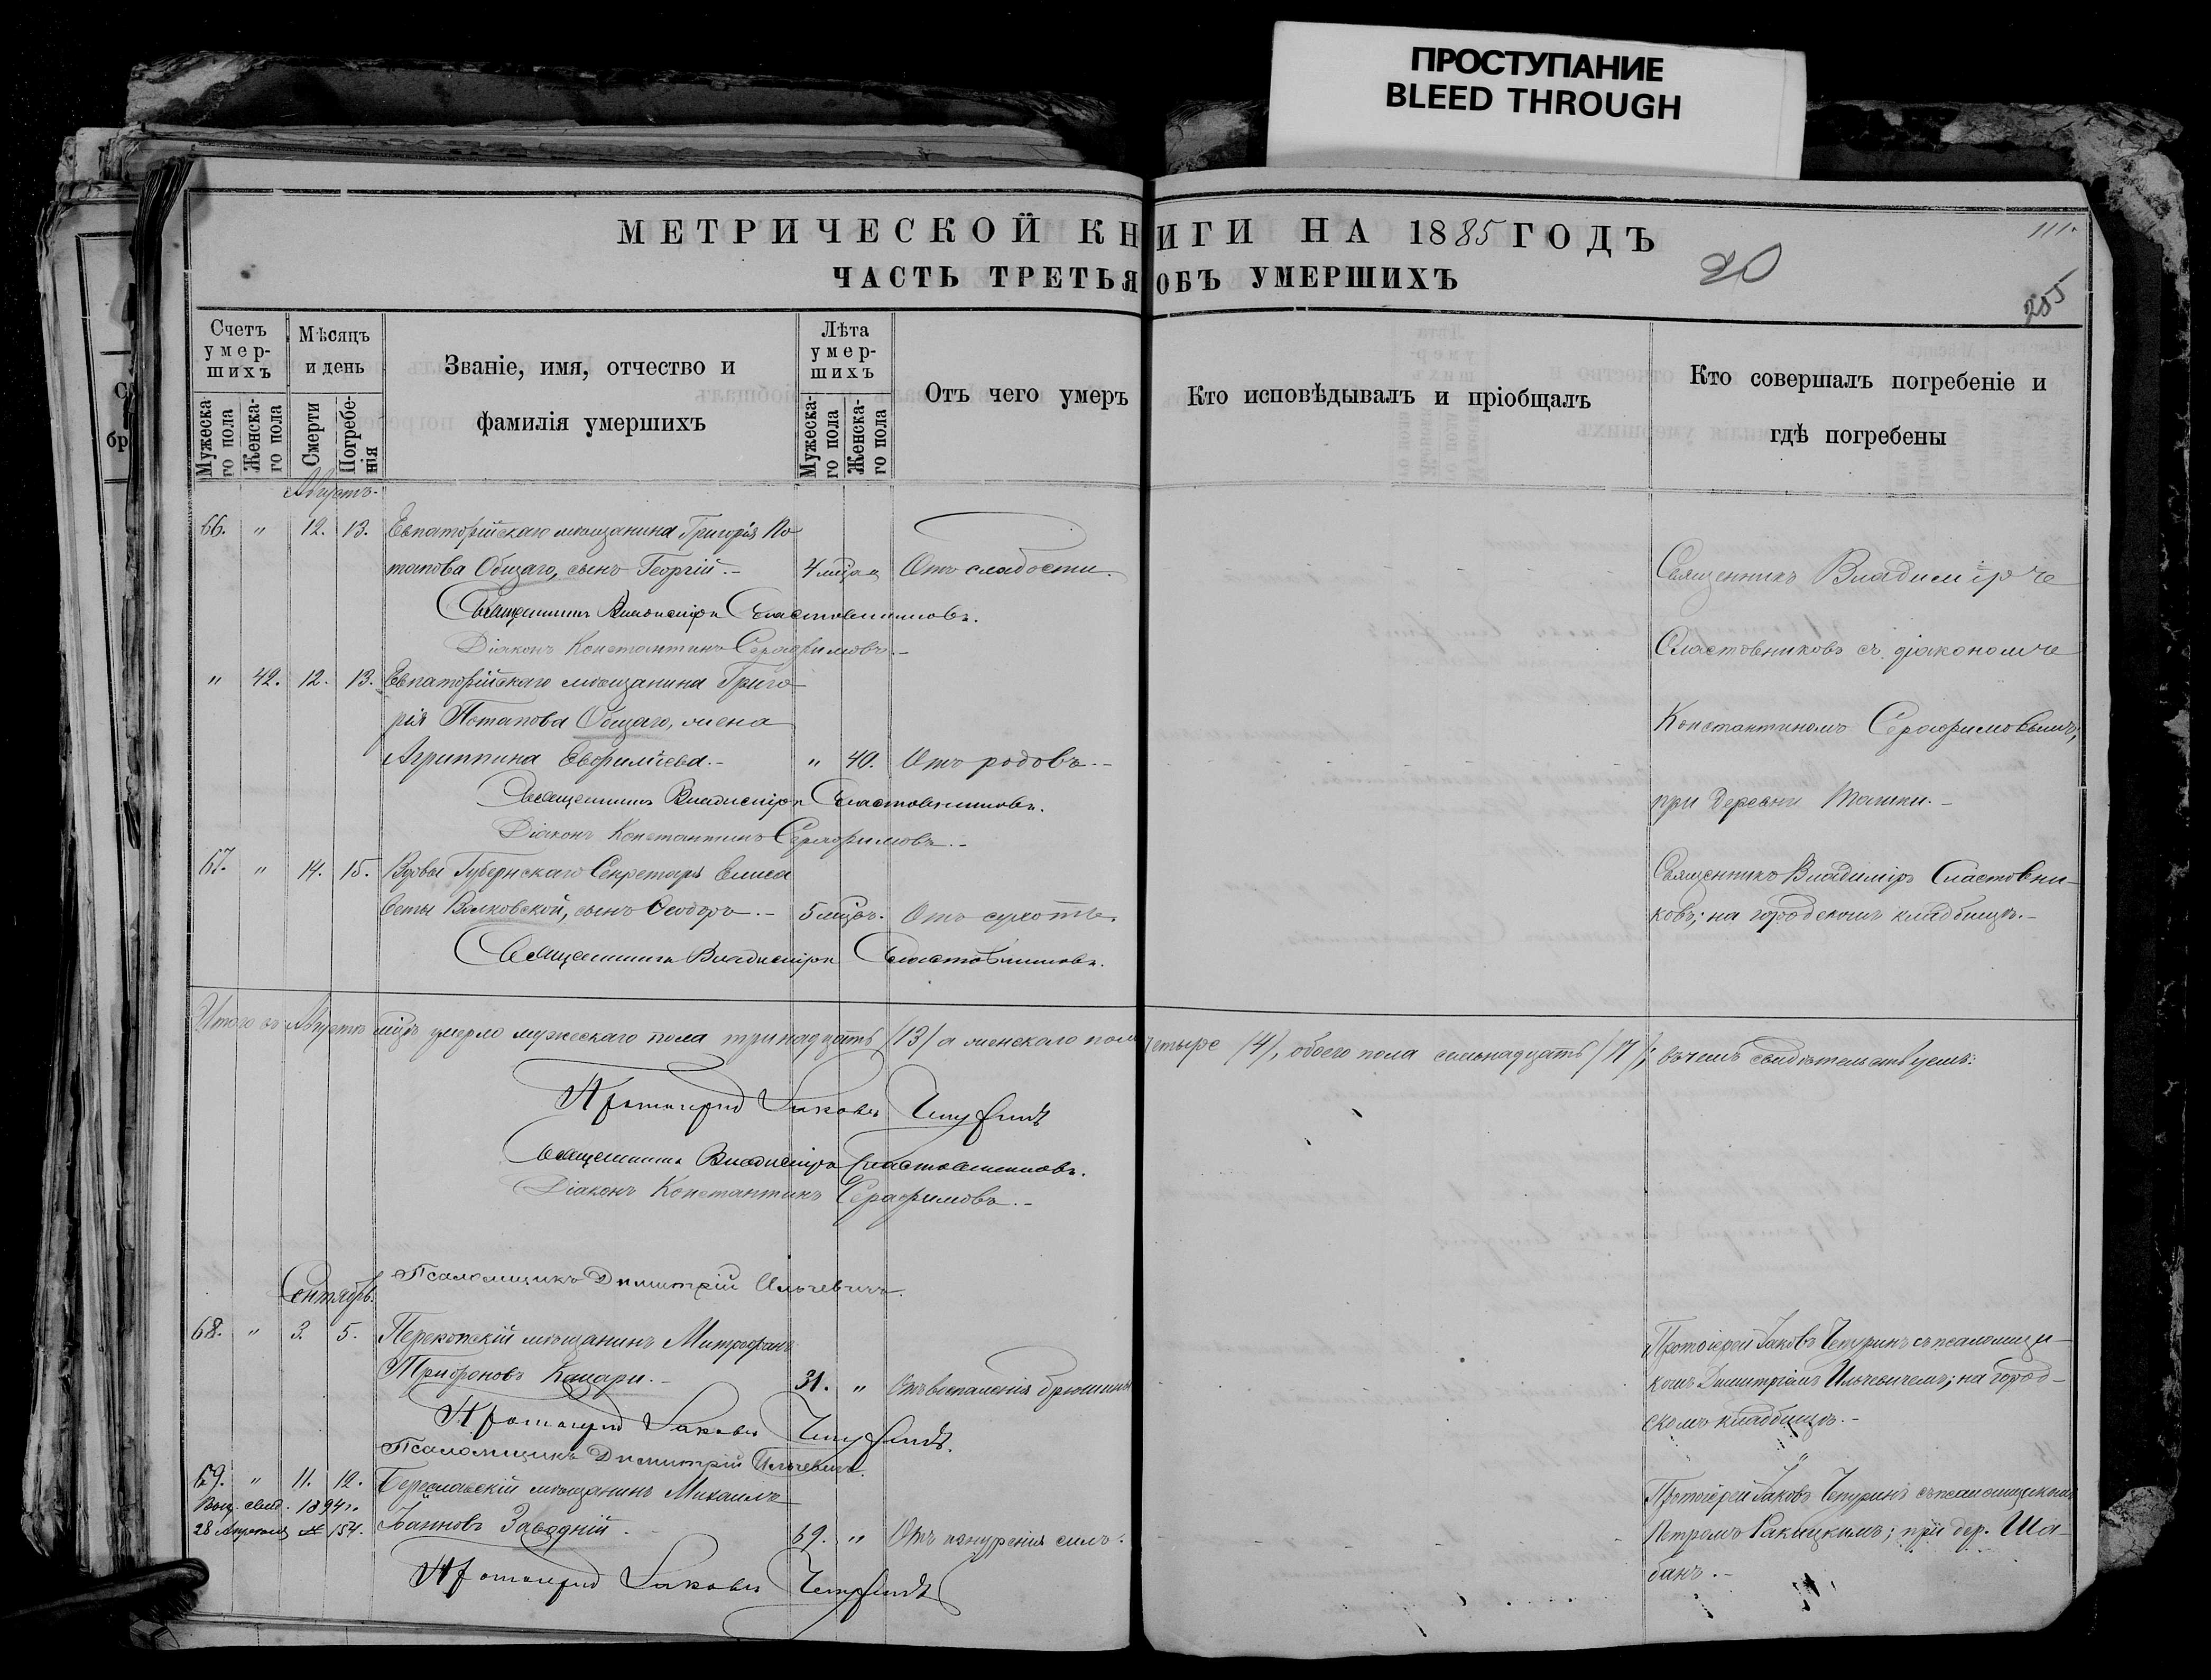 ПРОСТУПАНИЕ
BLEED THROUGH
МЕТРИЧЕСКОЙ КНИГИ НА 1885 ГОДЪ
111.
ЧАСТЬ ТРЕТЬЯ ОБЪ УМЕРШИХЪ
20
205
Счетъ умер-шихъ
Мужеска-го пола
Женска-го пола
Мѣсяцъ и день
Смерти
Погребе-нія
Званіе, имя, отчество и
фамилія умершихъ
Лѣта умер-шихъ
Мужеска-го пола
Женска-го пола
Отъ чего умеръ
Кто исповѣдывалъ и пріобщалъ
Кто совершалъ погребеніе и
гдѣ погребены
Августъ.
66. " 12. 13. Евпаторійскаго мѣщанина Григорія По
тапова Общаго, сынъ Георгій.- 4 мѣсяц Отъ слабости.
Священникъ Владиміръ
Священникъ Владиміръ Сластовниковъ.
Діаконъ Константинъ Серафимовъ.-
Сластовниковъ съ діакономъ
" 42. 12. 13. Евпаторійскаго мѣщанина Григо
рія Потапова Общаго, жена
Константиномъ Серафимовымъ,
Агриппина Евфиміева.- " 40. Отъ родовъ.-
Священникъ Владиміръ Сластовниковъ.
при деревни Ташки.-
Діаконъ Константинъ Серафимовъ.-
67. " 14. 15. Вдовы Губернскаго Секретаря Елиса
веты Волковской, сынъ Ѳеодоръ.- 5 мѣсц. Отъ сухоты.
Священникъ Владиміръ Сластовни-
ковъ; на городскомъ кладбищѣ.-
Священникъ Владиміръ Сластовниковъ.
Итого въ Августѣ мѣцѣ умерло мужескаго пола тринадцать /13/ а женскаго пола четыре /4/, обоего пола семьнадцать /17/; въ чемъ свидѣтельствуемъ:
Протоіерей Іаковъ Чепуринъ
Священникъ Владиміръ Сластовниковъ.
Діаконъ Константинъ Серафимовъ.-
Псаломщикъ Димитрій Ильчевичъ.
Сентябрь.
68. " 3. 5. Перекопскій мѣщанинъ Митрофанъ
Трифоновъ Качари.- 31. " Отъ воспаленія брюшины
Протоіерей Іаковъ Чепуринъ съ псаломщи-
комъ Димитріемъ Ильчевичемъ; на город-
скомъ кладбищѣ.-
Протоіерей Іаковъ Чепуринъ.
Псаломщикъ Димитрій Ильчевичъ.
69. " 11. 12. Бериславскій мѣщанинъ Михаилъ
Выд. свид. 1894 г.
28 Апрѣля № 154. Іоанновъ Заводній. 69. " Отъ изнуренія силъ.
Протоіерей Іаковъ Чепуринъ съ псаломщикомъ
Петромъ Ракицкимъ; при дер. Ша-
банъ.-
Протоіерей Іаковъ Чепуринъ